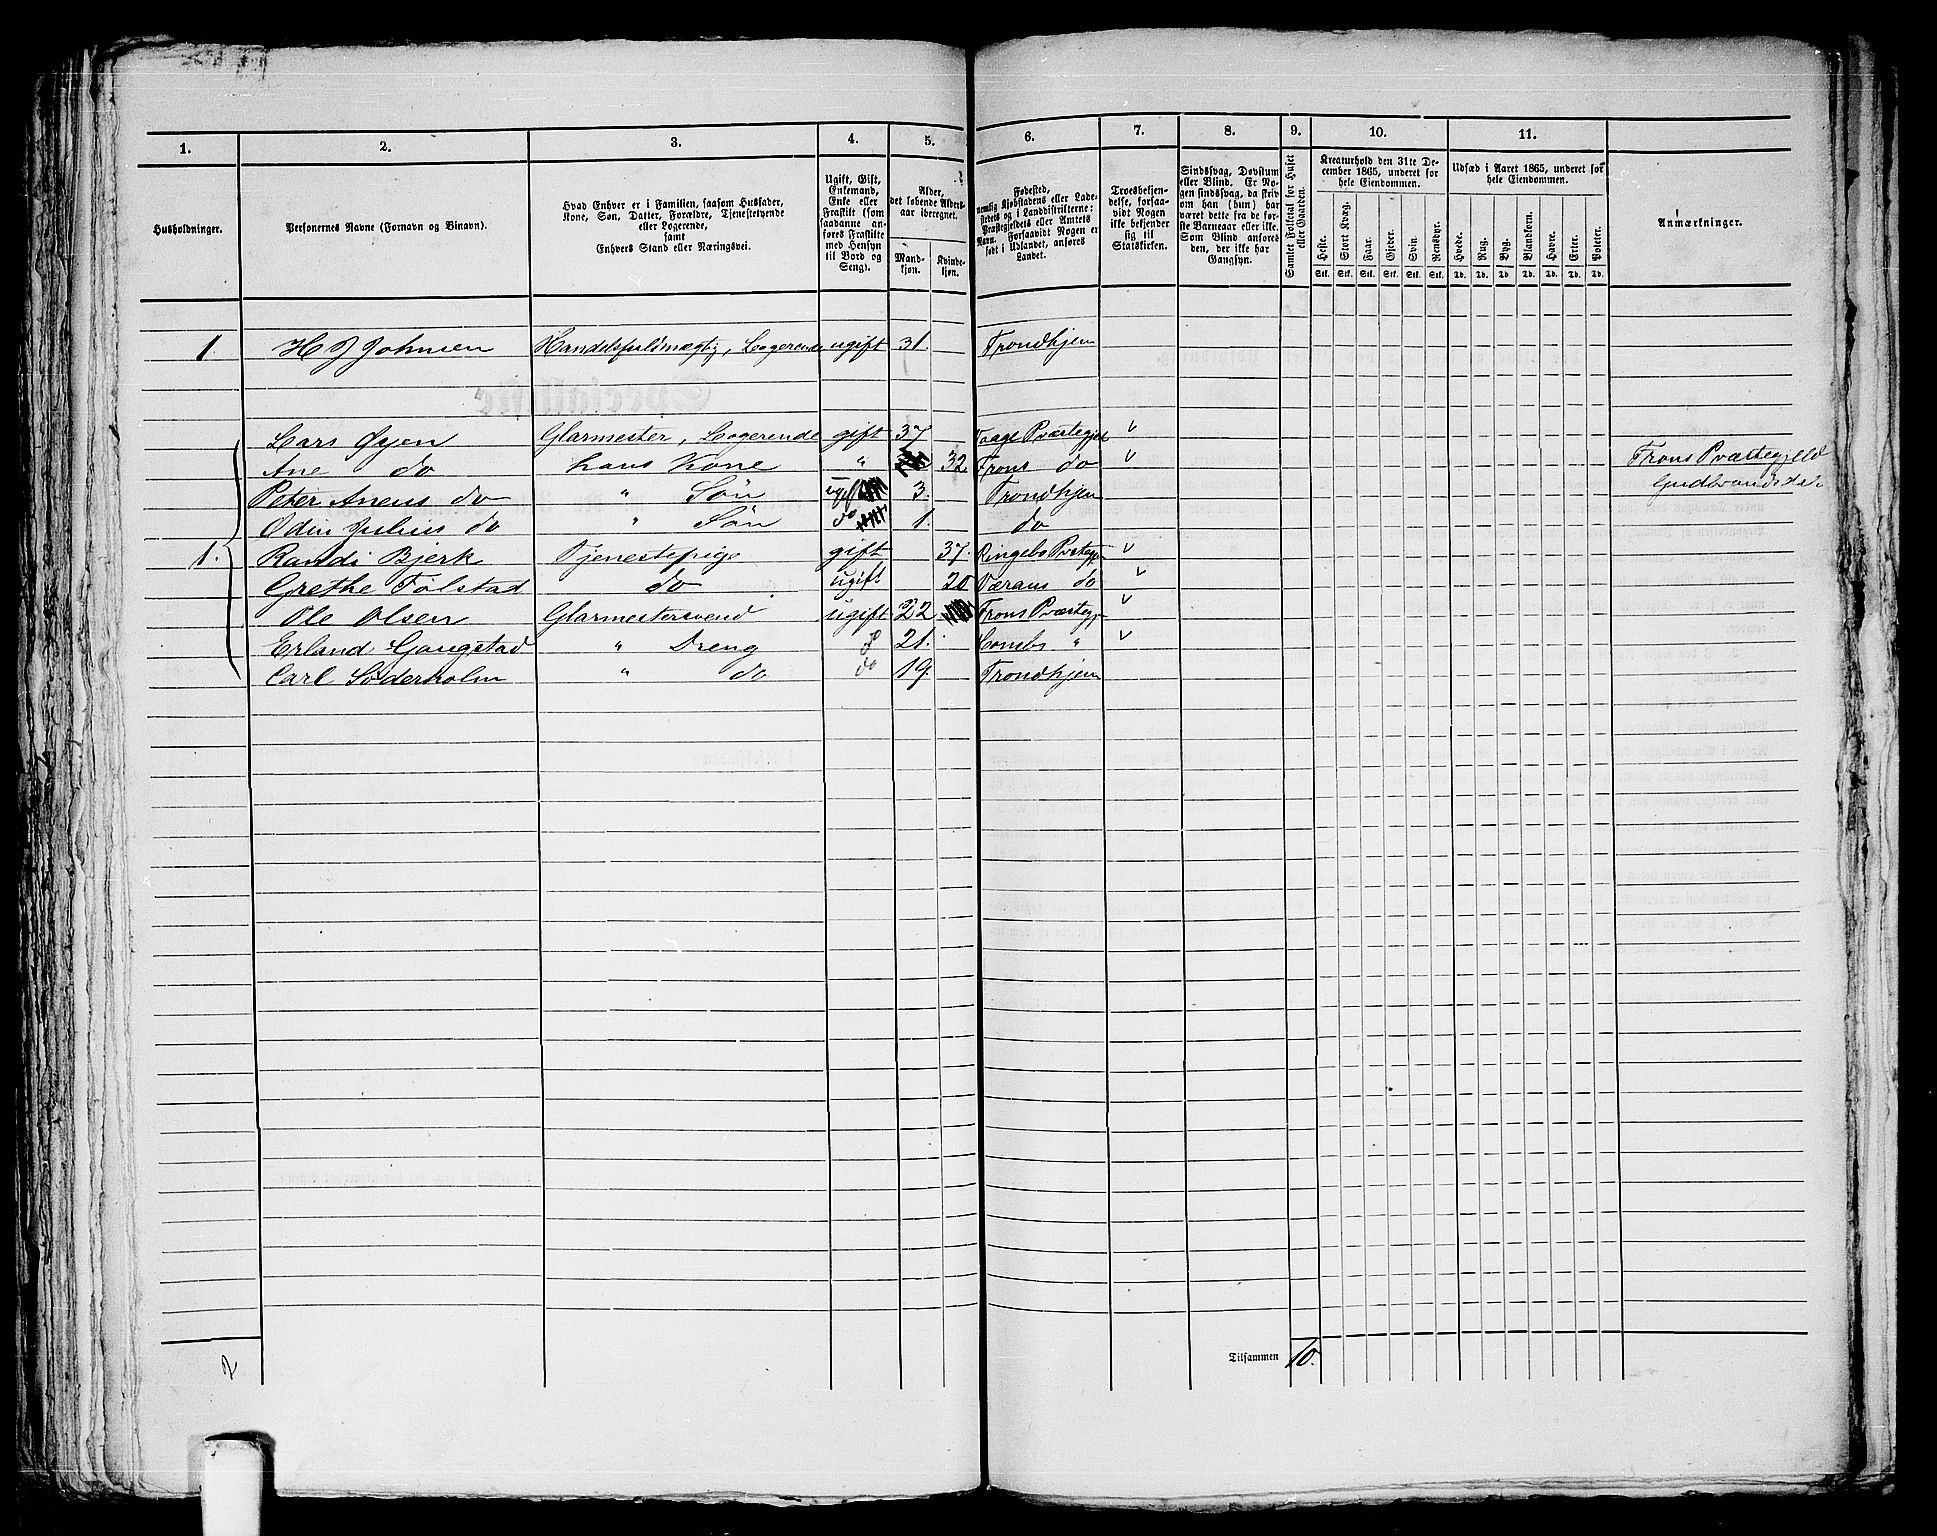 1. 2. 3. 4. 5. 6. 7. 8. 9. 10. 11.
Husholdninger.
Personernes Navne (Fornavn og Binavn).
Hvad Enhver er i Familien, saasom Husfader,
Kone, Søn, Datter, Forældre, Tjenestetyende
eller Logerende,
samt
Enhvers Stand eller Næringsvei.
Ugift, Gift,
Enkemand,
Enke eller
Fraskilt (som
saadanne an-
føres Fraskilte
med Hensyn
til Bord og
Seng).
Alder,
det løbende Alders-
aar iberegnet.
Mand-
kjøn.
Kvinde-
kjøn.
Fødested,
nemlig Kjøbstadens eller Lade-
stedets og i Landdistrikterne:
Præstegjeldets eller Amtets
Navn. Forsaavidt Nogen er
født i Udlandet, anføres
Landet.
Troesbekjen-
delse, forsaa-
vidt Nogen
ikke bekjender
sig til
Statskirken.
Sindssvag, Døvstum
eller Blind. Er No-
gen sindssvag, da skriv
om han (hun) har
været dette fra de før-
ste Barneaar eller ikke.
Som Blind anføres
den, der ikke har
Gangsyn.
Samlet Folketal for Huset
eller Gaarden.
Kreaturhold den 31te De-
cember 1865, underet for
hele Eiendommen.
Heste. Stort Kvæg. Faar. Gjeder. Svin. Rensdyr.
Stk. Stk. Stk. Stk. Stk. Stk.
Udsæd i Aaret 1865, underet for
hele Eiendommen.
Hvede. Rug. Byg. Blandkorn. Havre. Erter. Poteter.
Td. Td. Td. Td. Td. Td. Td.
Anmærkninger.
1. H J Johnsen Handelsfuldmægtig, Logerende ugift 31. Trondhjem
Lars Øyen Glarmester, Logerende gift 37 Vaage Præstegjel v
Ane do hans Kone " 32 Frons do v Frons Præstegjeld
Peter Anens do " Søn ugift 3. Trondhjem Gudbrandsdal
Odin Julius do " Søn do 1. do
1. Randi Bjerk Tjenestepige gift 37. Ringebo Præstegj v
Grethe Folstad do ugift 20 Værans do v
Ole Olsen Glarmestersvend ugift 22 Frons Præstegj v
Erland Gaugstad " Dreng d 21. " v
Carl Søderholm " do do 19. Trondhjem
2
Tilsammen 10.